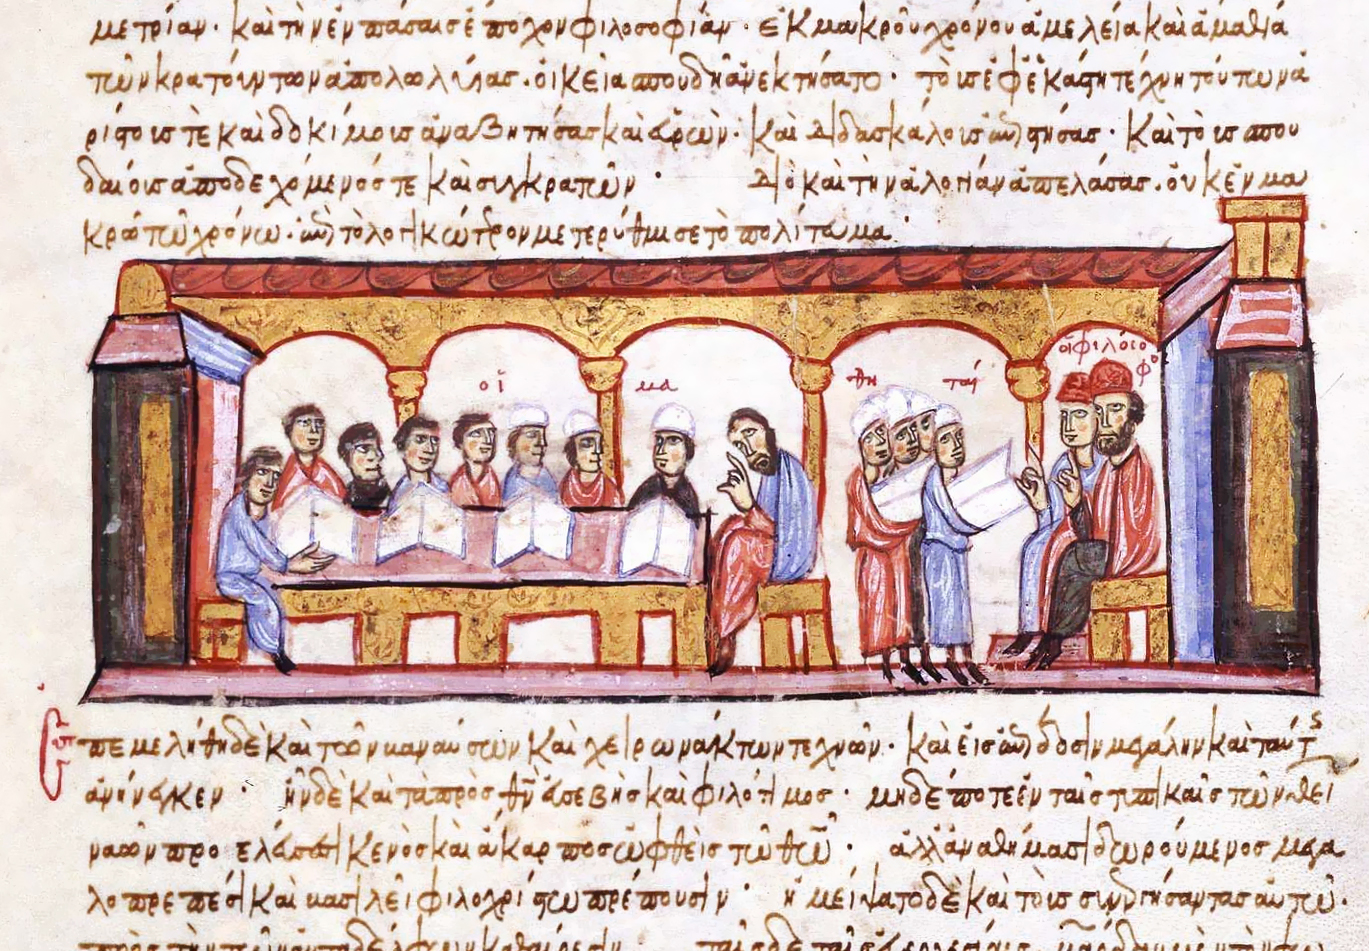 μετρίαν· καὶ τὴν ἐν πάσαις ἔποχον φιλοσοφίαν· ἐκ μακροῦ χρόνου ἀμελεία καὶ ἀμαθία
τῶν κρατούντων ἀπολωλυίας. οἰκεία σπουδῆ ἀνεκτήσατο· τοὺς ἐφ ἑκάστη τέχνη τούτων ἀ
ρίστους τὲ καὶ δοκίμους ἀναζητήσας καὶ εὑρών· καὶ διδασκάλους ἐπιστήσας· καὶ τοὺς σπου
δαίους ἀποδεχόμενός τε καὶ συγκροτῶν· Διὸ καὶ τὴν ἀλογίαν ἀπελάσας. οὐκ ἐν μα
κρῶ τῶ χρόνω. ἐπὶ τὸ λογικώτερον μετερύθμισε τὸ πολίτευμα.
οἱ μα θη ταί
οἱ φιλόσοφοι
Ἐπεμελήθη δὲ καὶ τῶν βαναύσων καὶ χειρωνακτων τεχνῶν· καὶ εἰς ἐπίδοσιν μεγάλην καὶ ταύτας
ἀνήνεγκεν· ἦν δὲ καὶ τὰ πρὸς θν εὐσεβὴς καὶ φιλότιμος· μηδέποτε ἐν ταῖς τῶν θεί
ναῶν κενὸς καὶ ἄκαρπος ὀφθεὶς τῶ θῶ· ἀλλ ἀναθήμασι δωρούμενος μεγα
λοπρεπέσι καὶ βασιλεῖ φιλοχρίστω πρέπουσιν· ἠμείψατο δὲ καὶ τοὺς αὐτῶ·